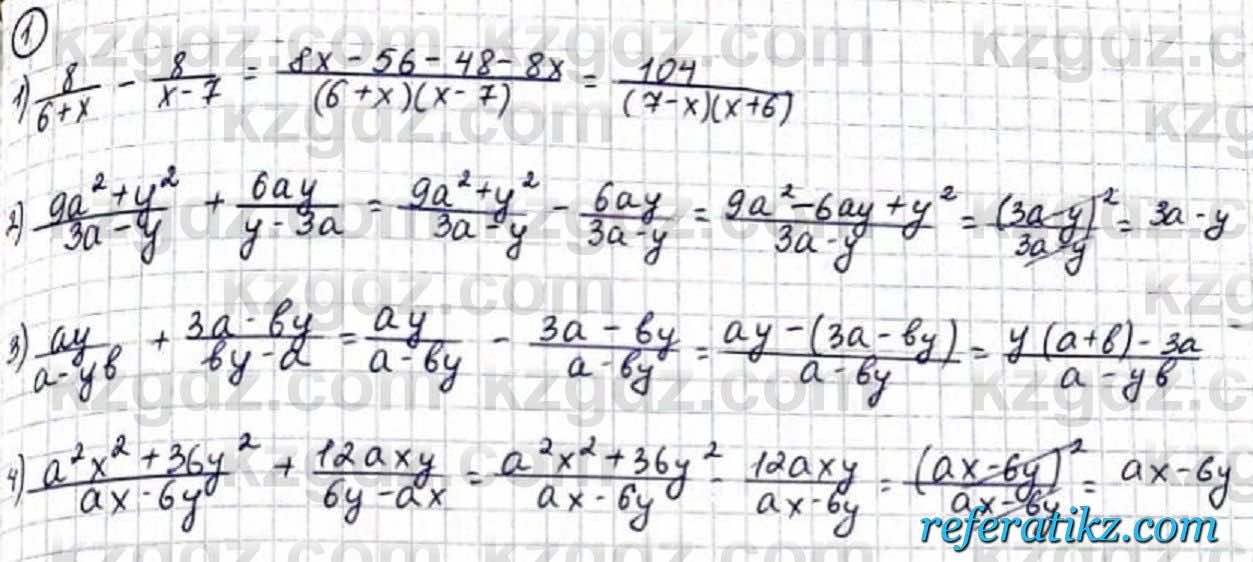 ①
1) 8/(6+x) - 8/(x-7) = (8x-56-48-8x)/((6+x)(x-7)) = 104/((7-x)(x+6))
2) (9a²+y²)/(3a-y) + 6ay/(y-3a) = (9a²+y²)/(3a-y) - 6ay/(3a-y) = (9a²-6ay+y²)/(3a-y) = (3a-y)²/(3a-y) = 3a-y
3) ay/(a-yв) + (3a-вy)/(вy-a) = ay/(a-вy) - (3a-вy)/(a-вy) = (ay-(3a-вy))/(a-вy) = (y(a+в)-3a)/(a-yв)
4) (a²x²+36y²)/(ax-6y) + 12axy/(6y-ax) = (a²x²+36y²)/(ax-6y) - 12axy/(ax-6y) = (ax-6y)²/(ax-6y) = ax-6y
referatikz.com
kzgdz.com